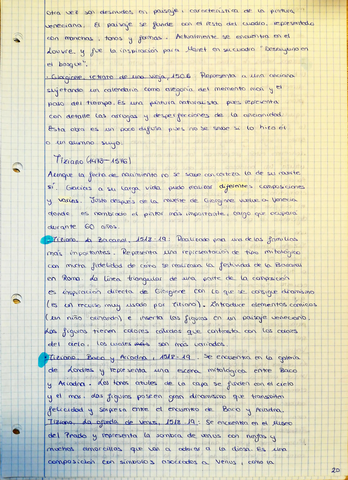 otra vez son desnudos en paisaje, característica de la pintura
veneciana. El paisaje se funde con el resto del cuadro, representado
con manchas, tonos y formas. Actualmente se encuentra en el
Louvre y fue la inspiración para Manet en su cuadro "Desayuno en
el bosque".
Giorgione, retrato de una vieja, 1506. Representa a una anciana
sujetando un calendario como alegoría del memento mori y el
paso del tiempo. Es una pintura naturalista pues representa
con detalle las arrugas y desperfecciones de la ancianidad.
Esta obra es un poco difusa pues no se sabe si lo hizo él
o un alumno suyo.
Tiziano (1473-1576)
Aunque la fecha de nacimiento no se sabe con certeza la de su muerte
sí. Gracias a su larga vida pudo realizar diferentes composiciones
y varias. Justo después de la muerte de Giorgione vuelve a Venecia
donde es nombrado el pintor más importante, cargo que ocupará
durante 60 años.
Tiziano, La Bacanal, 1518-19. Realizado para una de las familias
más importantes. Representa una representación de tipo mitológico
con mucha fidelidad de como se realizaba la festividad de la Bacanal
en Roma. La línea triangular de una parte de la composición
es inspiración directa de Giorgione con lo que se consigue dinamismo
(es un recurso muy usado por Tiziano). Introduce elementos cómicos
(un niño orinando) e inserta las figuras en un paisaje veneciano.
Las figuras tienen colores cálidos que contrasta con los colores
del cielo. Los cuales son más variados.
Tiziano, Baco y Ariadna, 1518-19. Se encuentra en la galería
de Londres y representa una escena mitológica entre Baco
y Ariadna. Los tonos azules de la capa se funden con el cielo
y el mar. Las figuras poseen gran dinamismo que transmiten
felicidad y sorpresa entre el encuentro de Baco y Ariadna.
Tiziano, La ofrenda de venus, 1518-19: Se encuentra en el Museo
del Prado y representa la sombra de venus con ninfas y
muchos amorcillos que va a adorar a la diosa. Es una
composición con símbolos asociados a Venus, como la
20